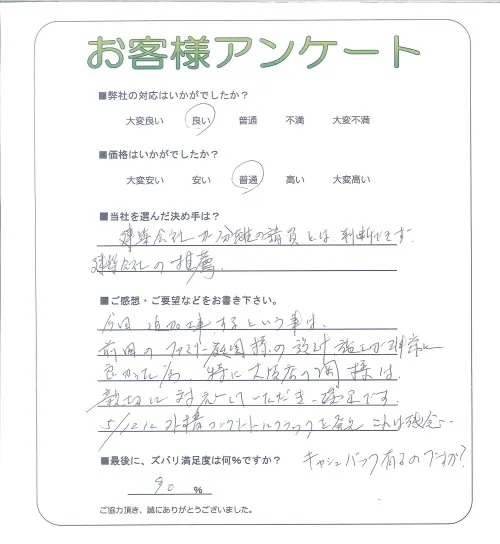 お客様アンケート
■弊社の対応はいかがでしたか？
大変良い 良い 普通 不満 大変不満
■価格はいかがでしたか？
大変安い 安い 普通 高い 大変高い
■当社を選んだ決め手は？
建築会社が分離の請負とは 判断です.
建築会社の推薦.
■ご感想・ご要望などをお書き下さい。
今回 追加工事するという事は、
前回のファミリー庭園様の設計、施工が非常に
良かった為、特に大阪店の 様は
親切に対応していただき 満足です
5/12に外構コンクリートにクラックを発見 これは残念…
キャッシュバック有るのですか？
■最後に、ズバリ満足度は何%ですか？
90 %
ご協力頂き、誠にありがとうございました。